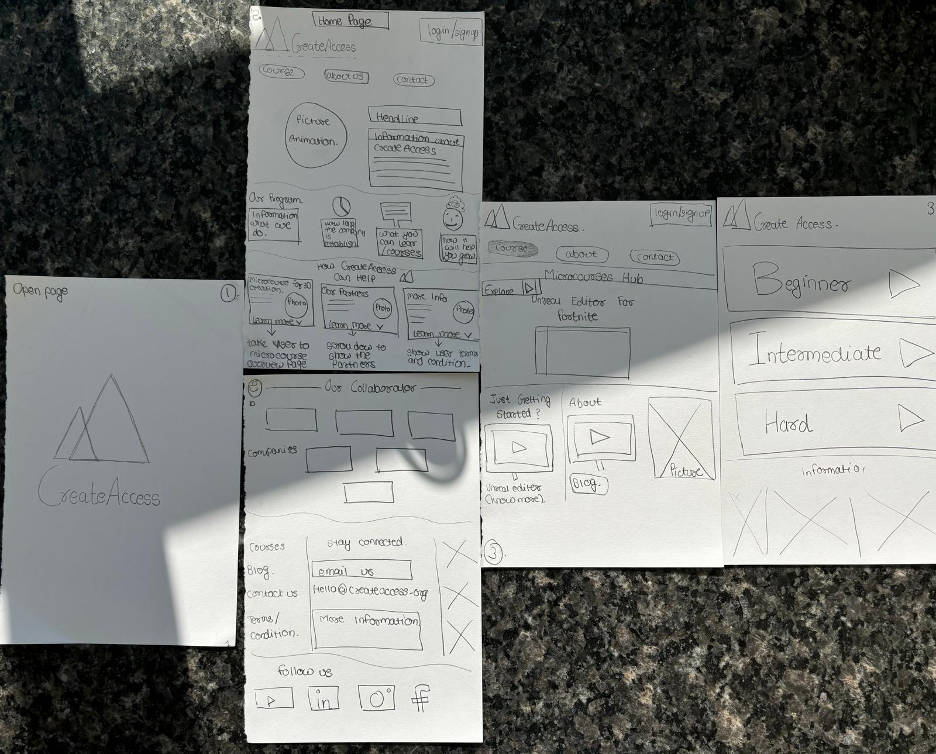 Open page
1
CreateAccess
Home Page
login/signup
CreateAccess
Course
about us
contact
Picture
Animation.
Headline
Information about
CreateAccess
Our Program
Information
what we
do.
what you
can lear
/courses
how it
will help
you grow
How CreateAccess
Can Help
Microcourse for 3D
Creation.
Photo
Learn more
Our Partners
Photo
Learn more
more Info
Photo
Learn more
take user to
microcourse
overview page
scroll down to
show the
Partners
show user terms
and condition.
2
Our Collaborator
Companies
Courses
Blog.
Contact us
Terms/
condition.
Stay connected
email us
Hello@createaccess.org
More Information
follow us
in
f
CreateAccess.
login/signup
Course
about
contact
Microcourses Hub
Explore
Unreal Editor For
fortnite
Just Getting
Started?
Unreal editor
(know more).
About
Blog.
Picture
3.
3
Create Access.
Beginner
Intermediate
Hard